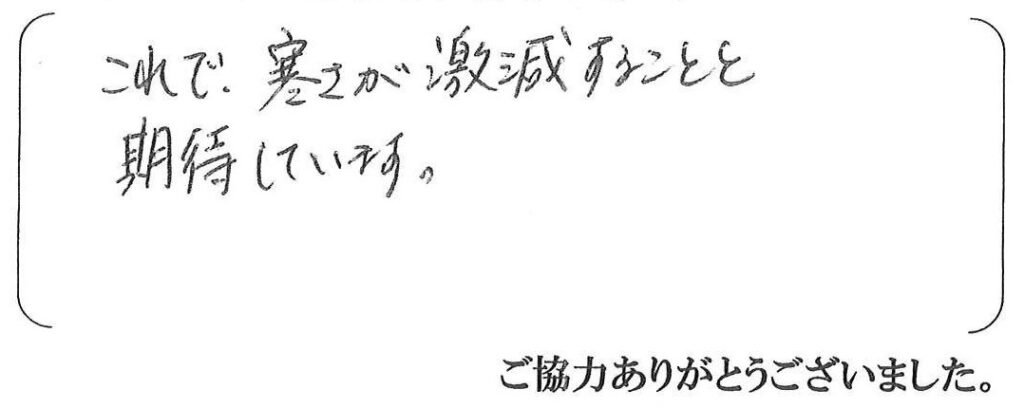 これで、寒さが激減することと
期待しています。
ご協力ありがとうございました。